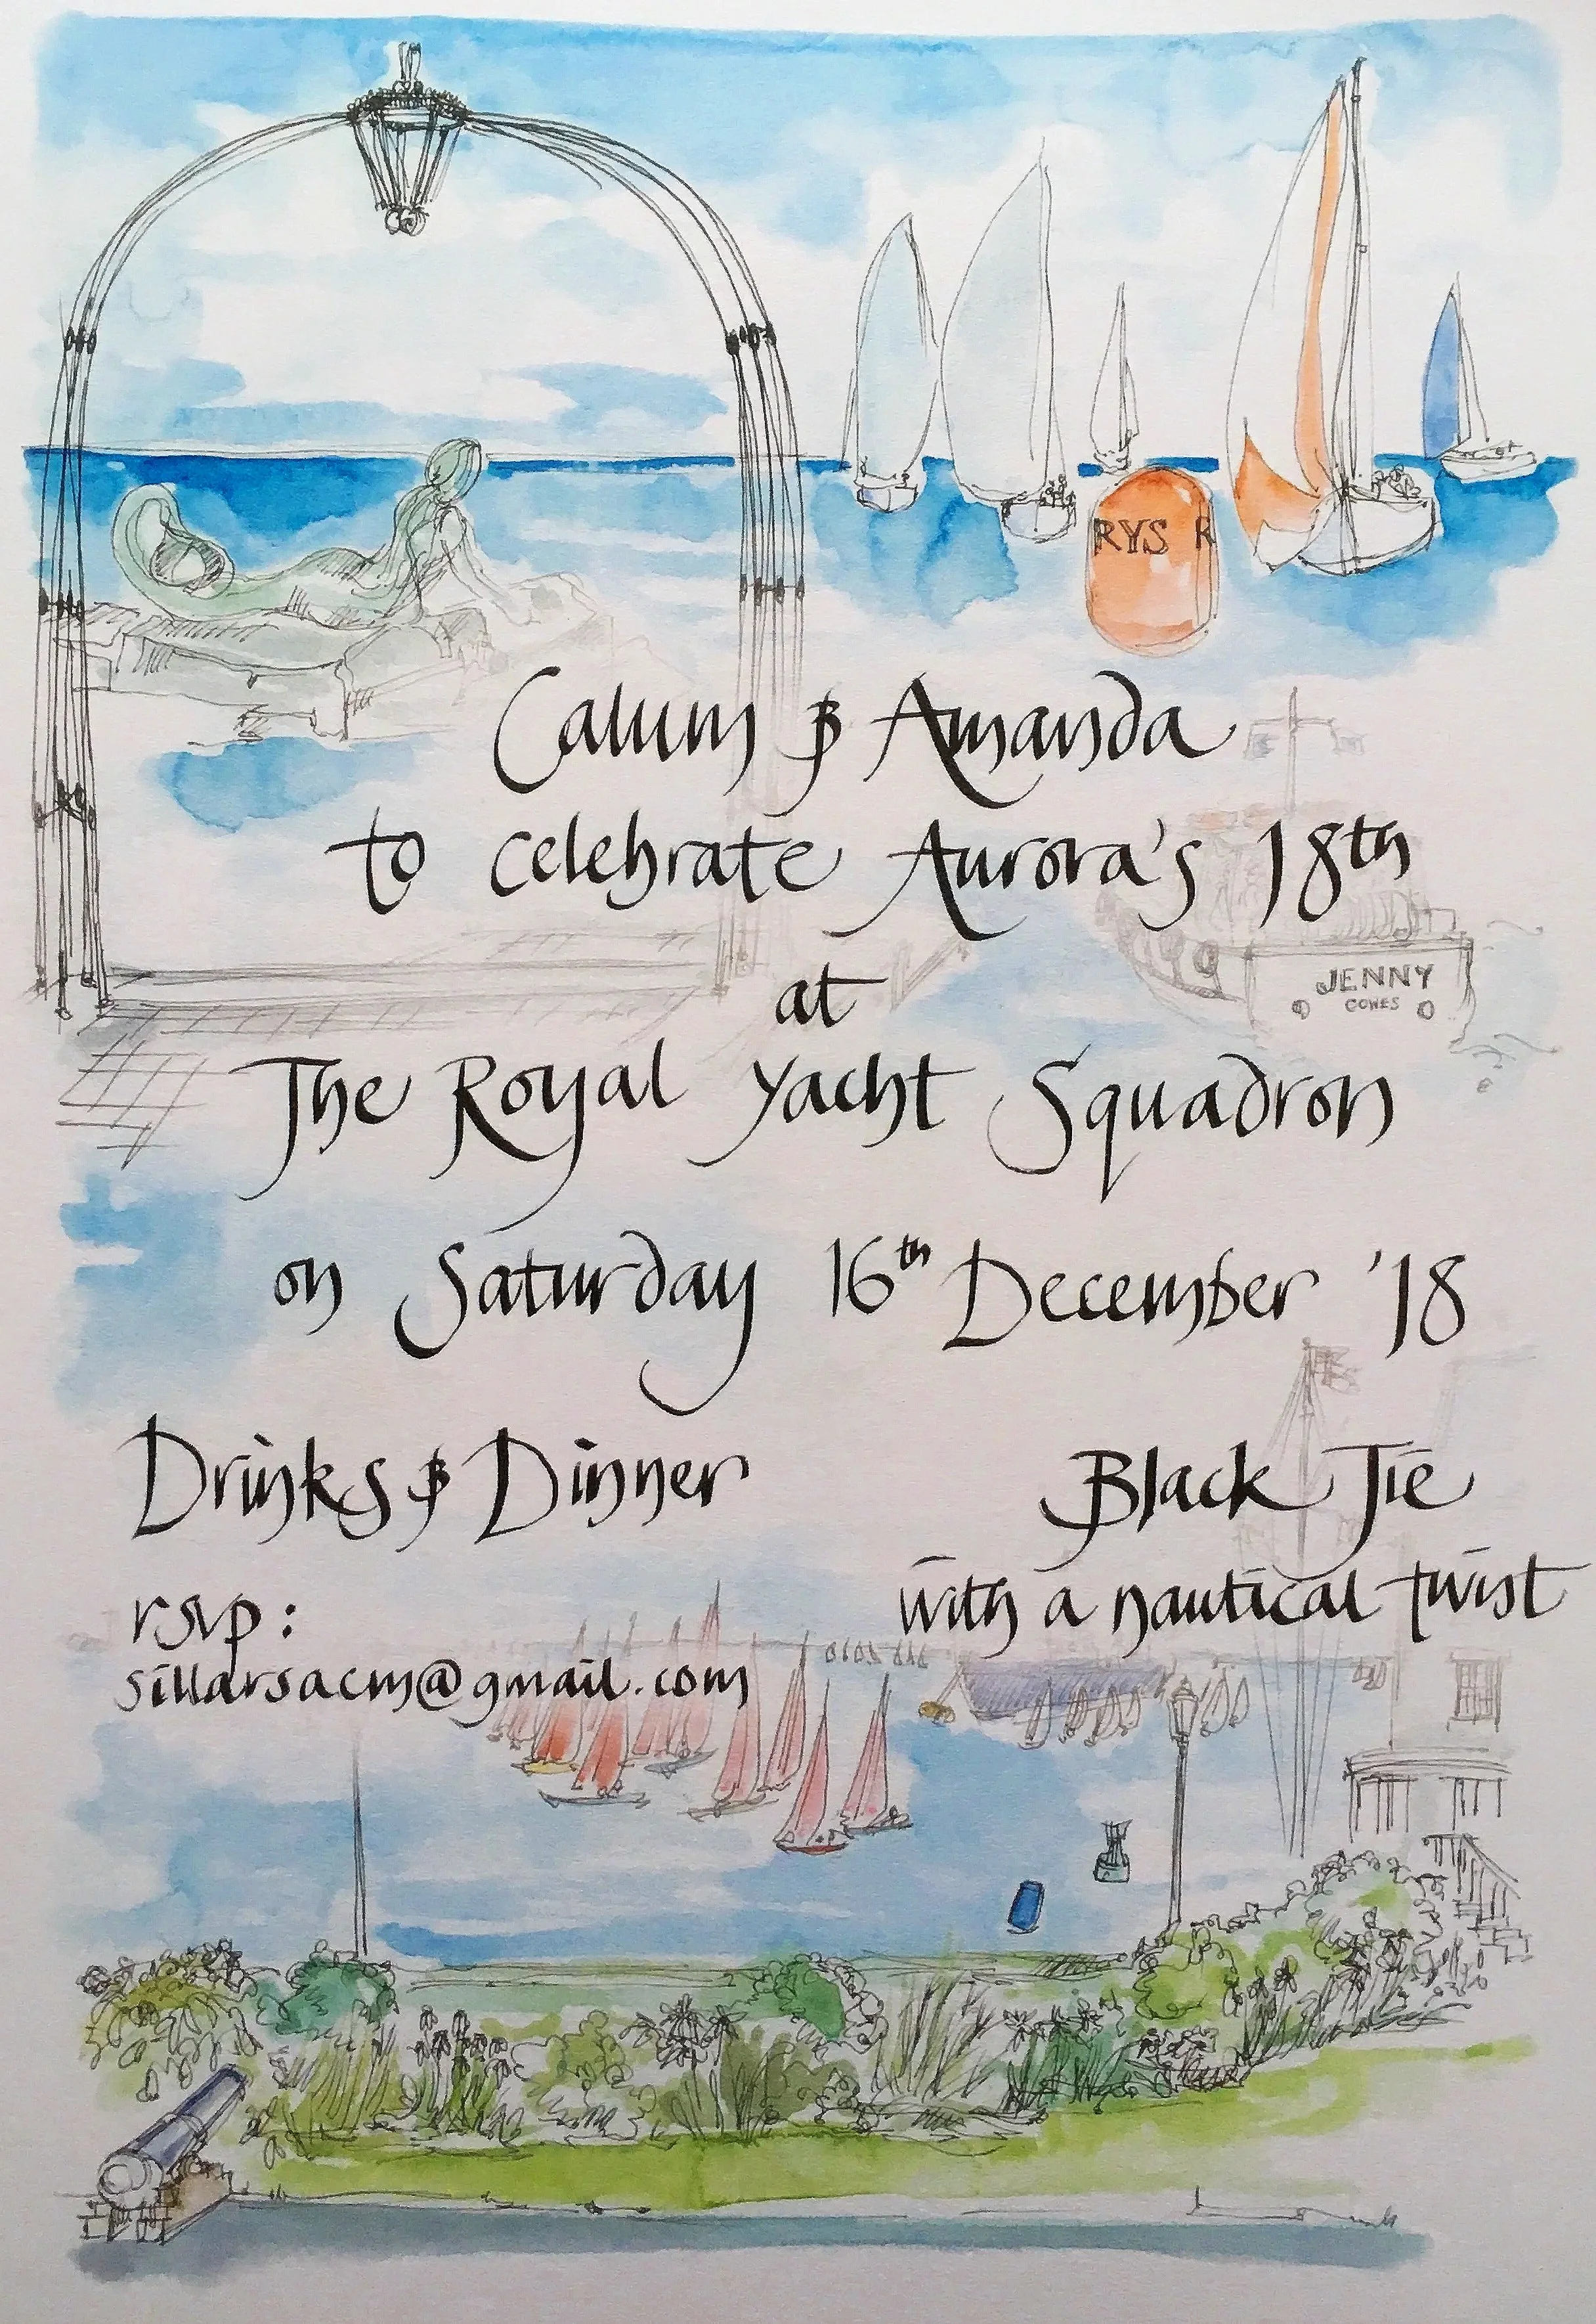 RYS R
Calum & Amanda
to celebrate Aurora's 18th
JENNY
COWES
at
The Royal Yacht Squadron
on Saturday 16th December '18
Drinks & Dinner
Black Tie
with a nautical twist
rsvp:
sillarsacm@gmail.com